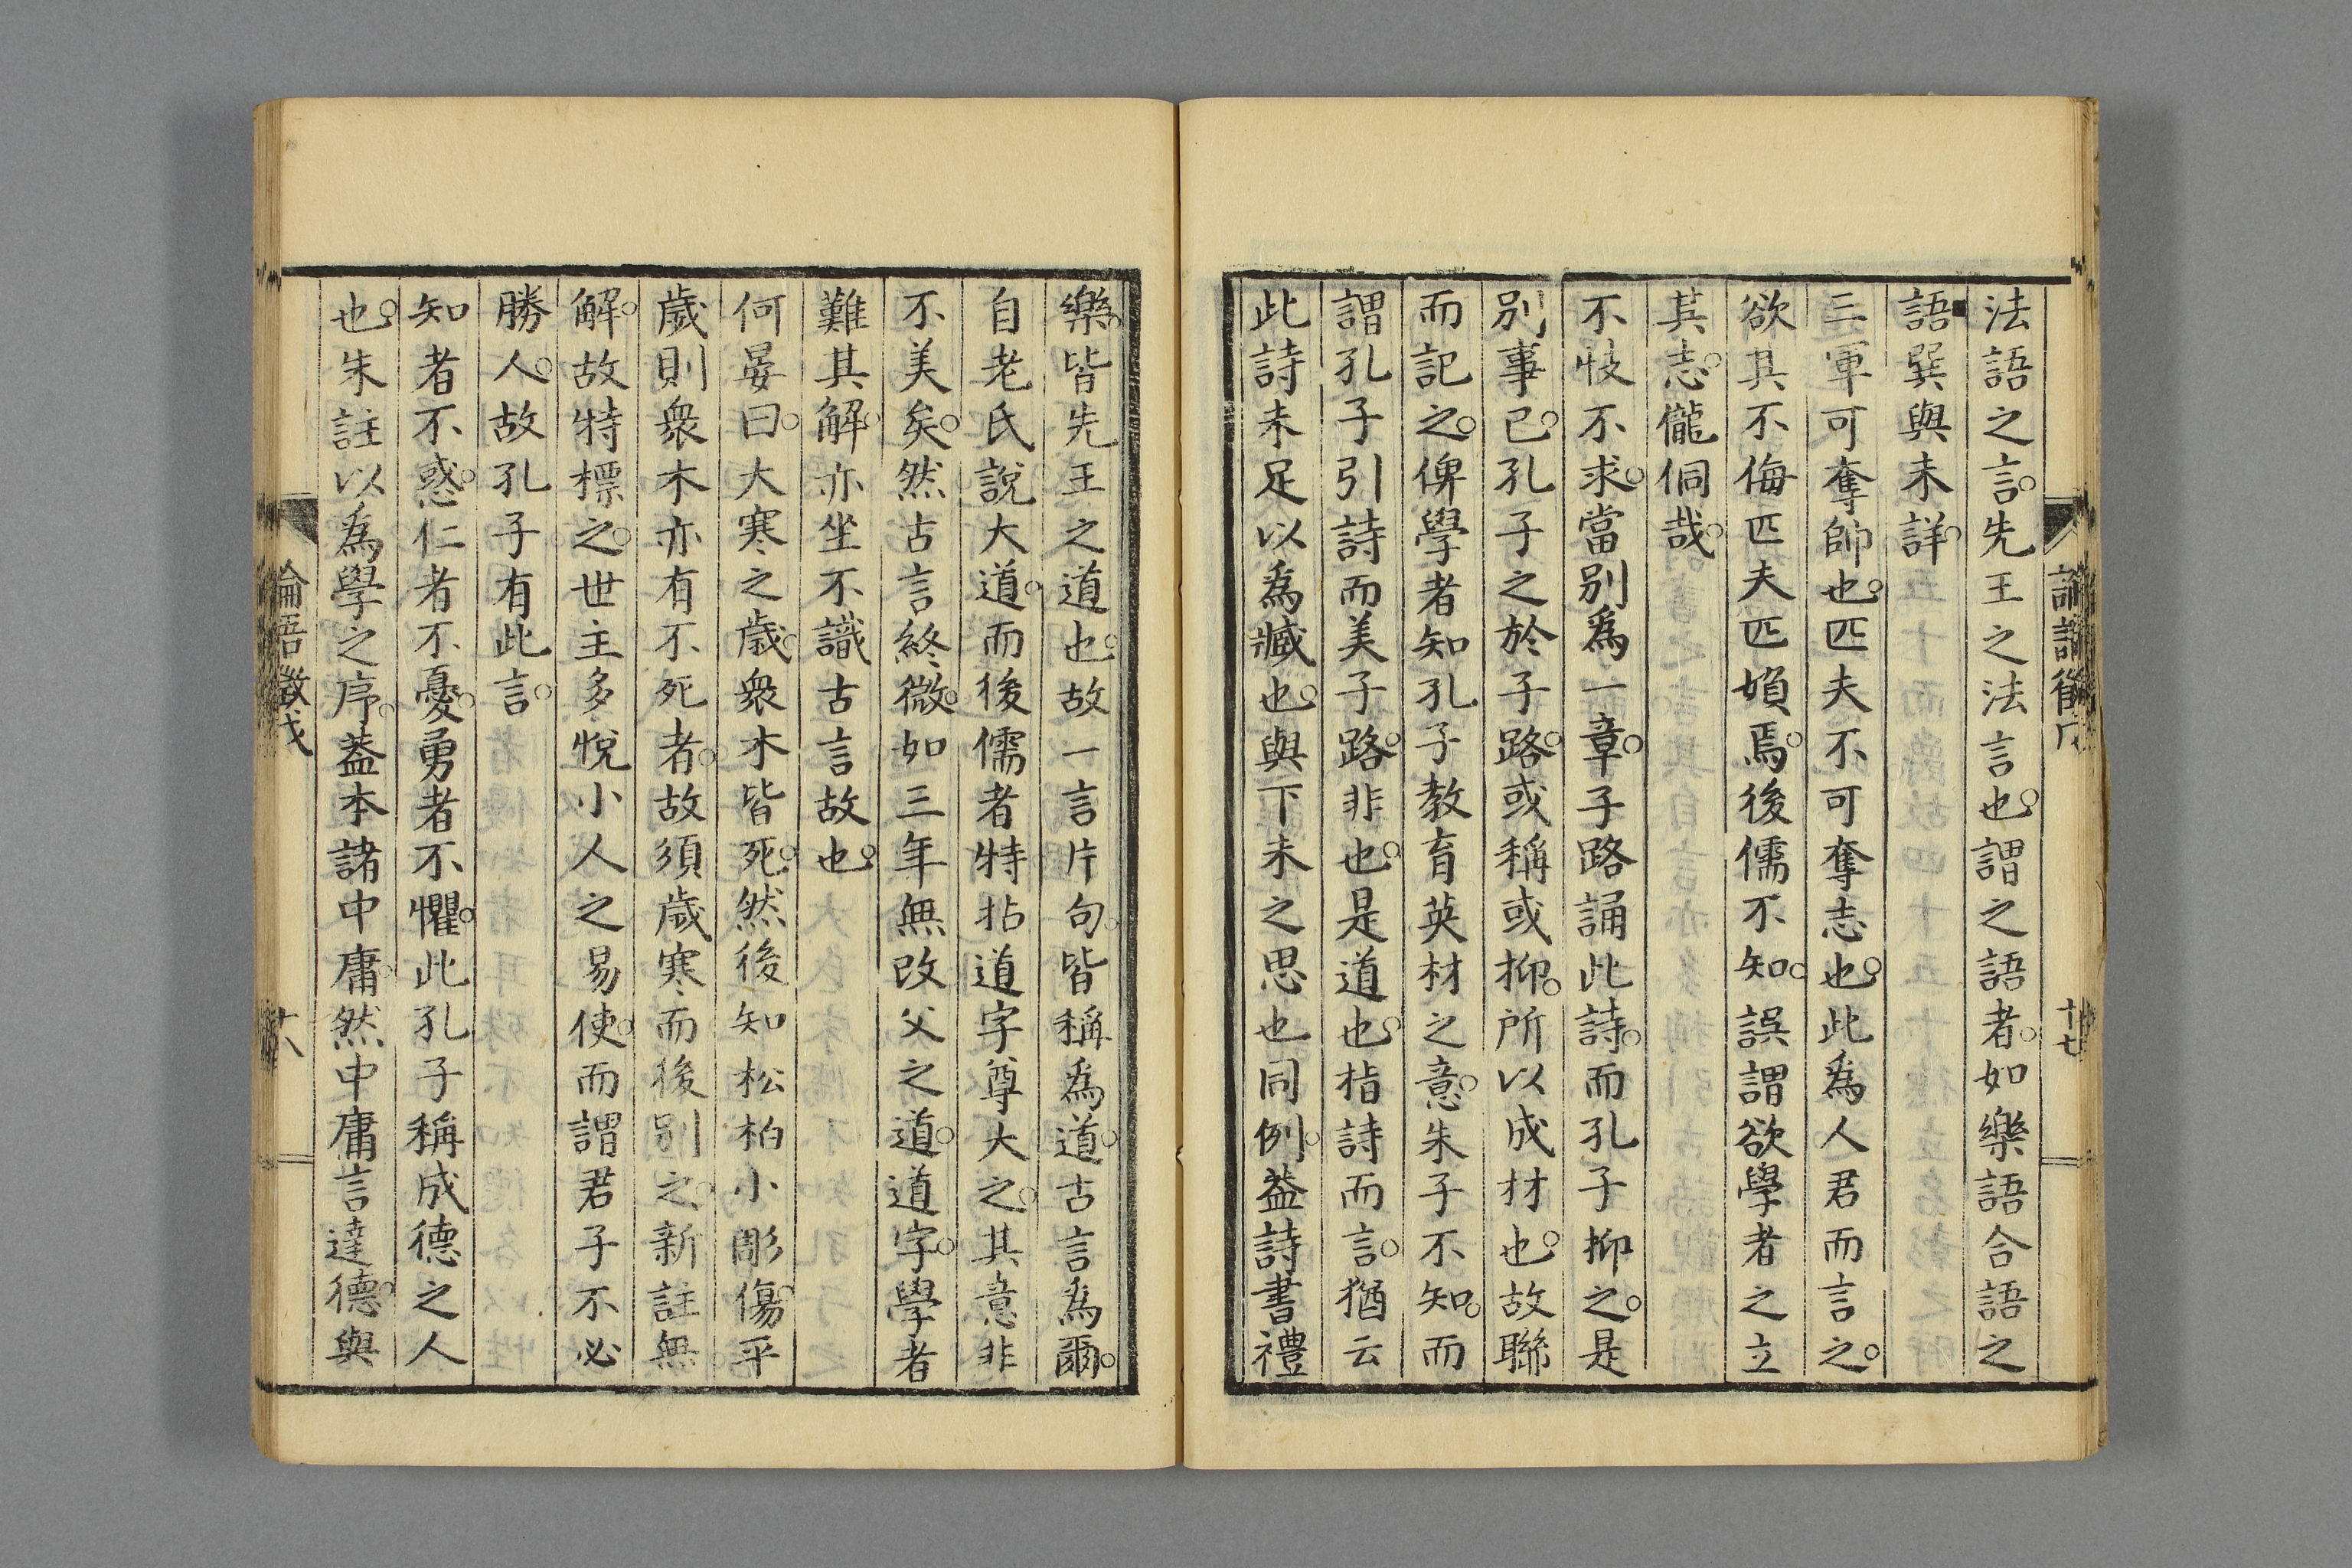 法語之言。先王之法言也。謂之語者。如樂語合語之
語。巽與未詳。
三軍可奪帥也。匹夫不可奪志也。此為人君而言之。
欲其不侮匹夫匹婦焉。後儒不知。誤謂欲學者之立
其志。儱侗哉。
不忮不求。當別為一章。子路誦此詩。而孔子抑之。是
別事已。孔子之於子路。或稱或抑。所以成材也。故聯
而記之。俾學者知孔子教育英材之意。朱子不知。而
謂孔子引詩而美子路。非也。是道也。指詩而言。猶云
此詩未足以為臧也。與下未之思也同例。蓋詩書禮
十七
樂。皆先王之道也。故一言片句。皆稱為道。古言為爾。
自老氏說大道。而後儒者特拈道字尊大之。其意非
不美矣。然古言終微。如三年無改父之道。道字。學者
難其解。亦坐不識古言故也。
何晏曰。大寒之歲。衆木皆死。然後知松柏小彫傷。平
歲則衆木亦有不死者。故須歲寒而後別之。新註無
解。故特標之。世主多悅小人之易使。而謂君子不必
勝人。故孔子有此言。
知者不惑。仁者不憂。勇者不懼。此孔子稱成德之人
也。朱註以為學之序。蓋本諸中庸。然中庸言達德。與
論語徵戊
十八